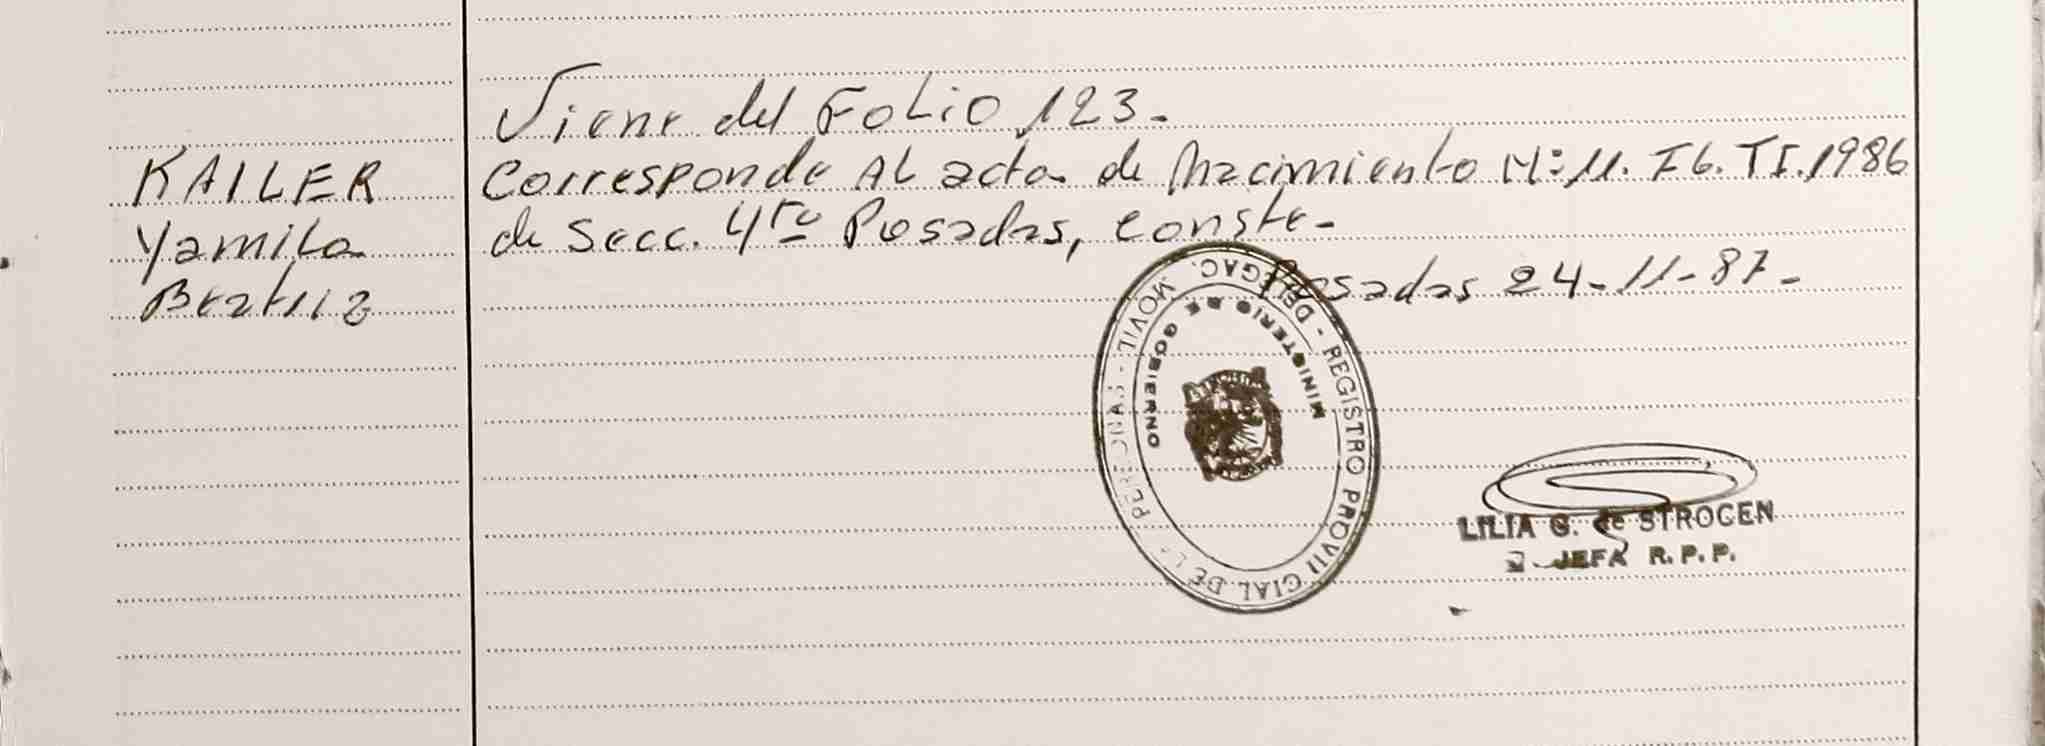 Viene del Folio 123.
KAILER
Yamila
Beatriz
Corresponde AL acta de Nacimiento N: 11. F6. TI. 1986
de Secc. 4ta Posadas, conste-
Posadas 24-11-87-
REGISTRO PROVINCIAL DE LAS PERSONAS - MOVIL - DELEGAC.
MINISTERIO DE GOBIERNO
LILIA G. de STROCEN
JEFA R.P.P.